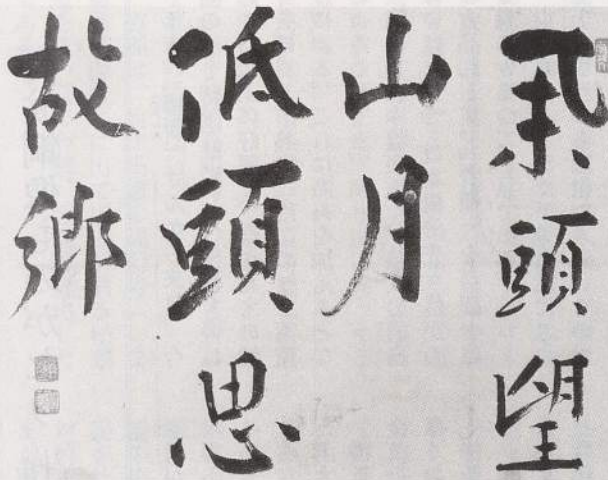 舉頭望
山月
低頭思
故鄉